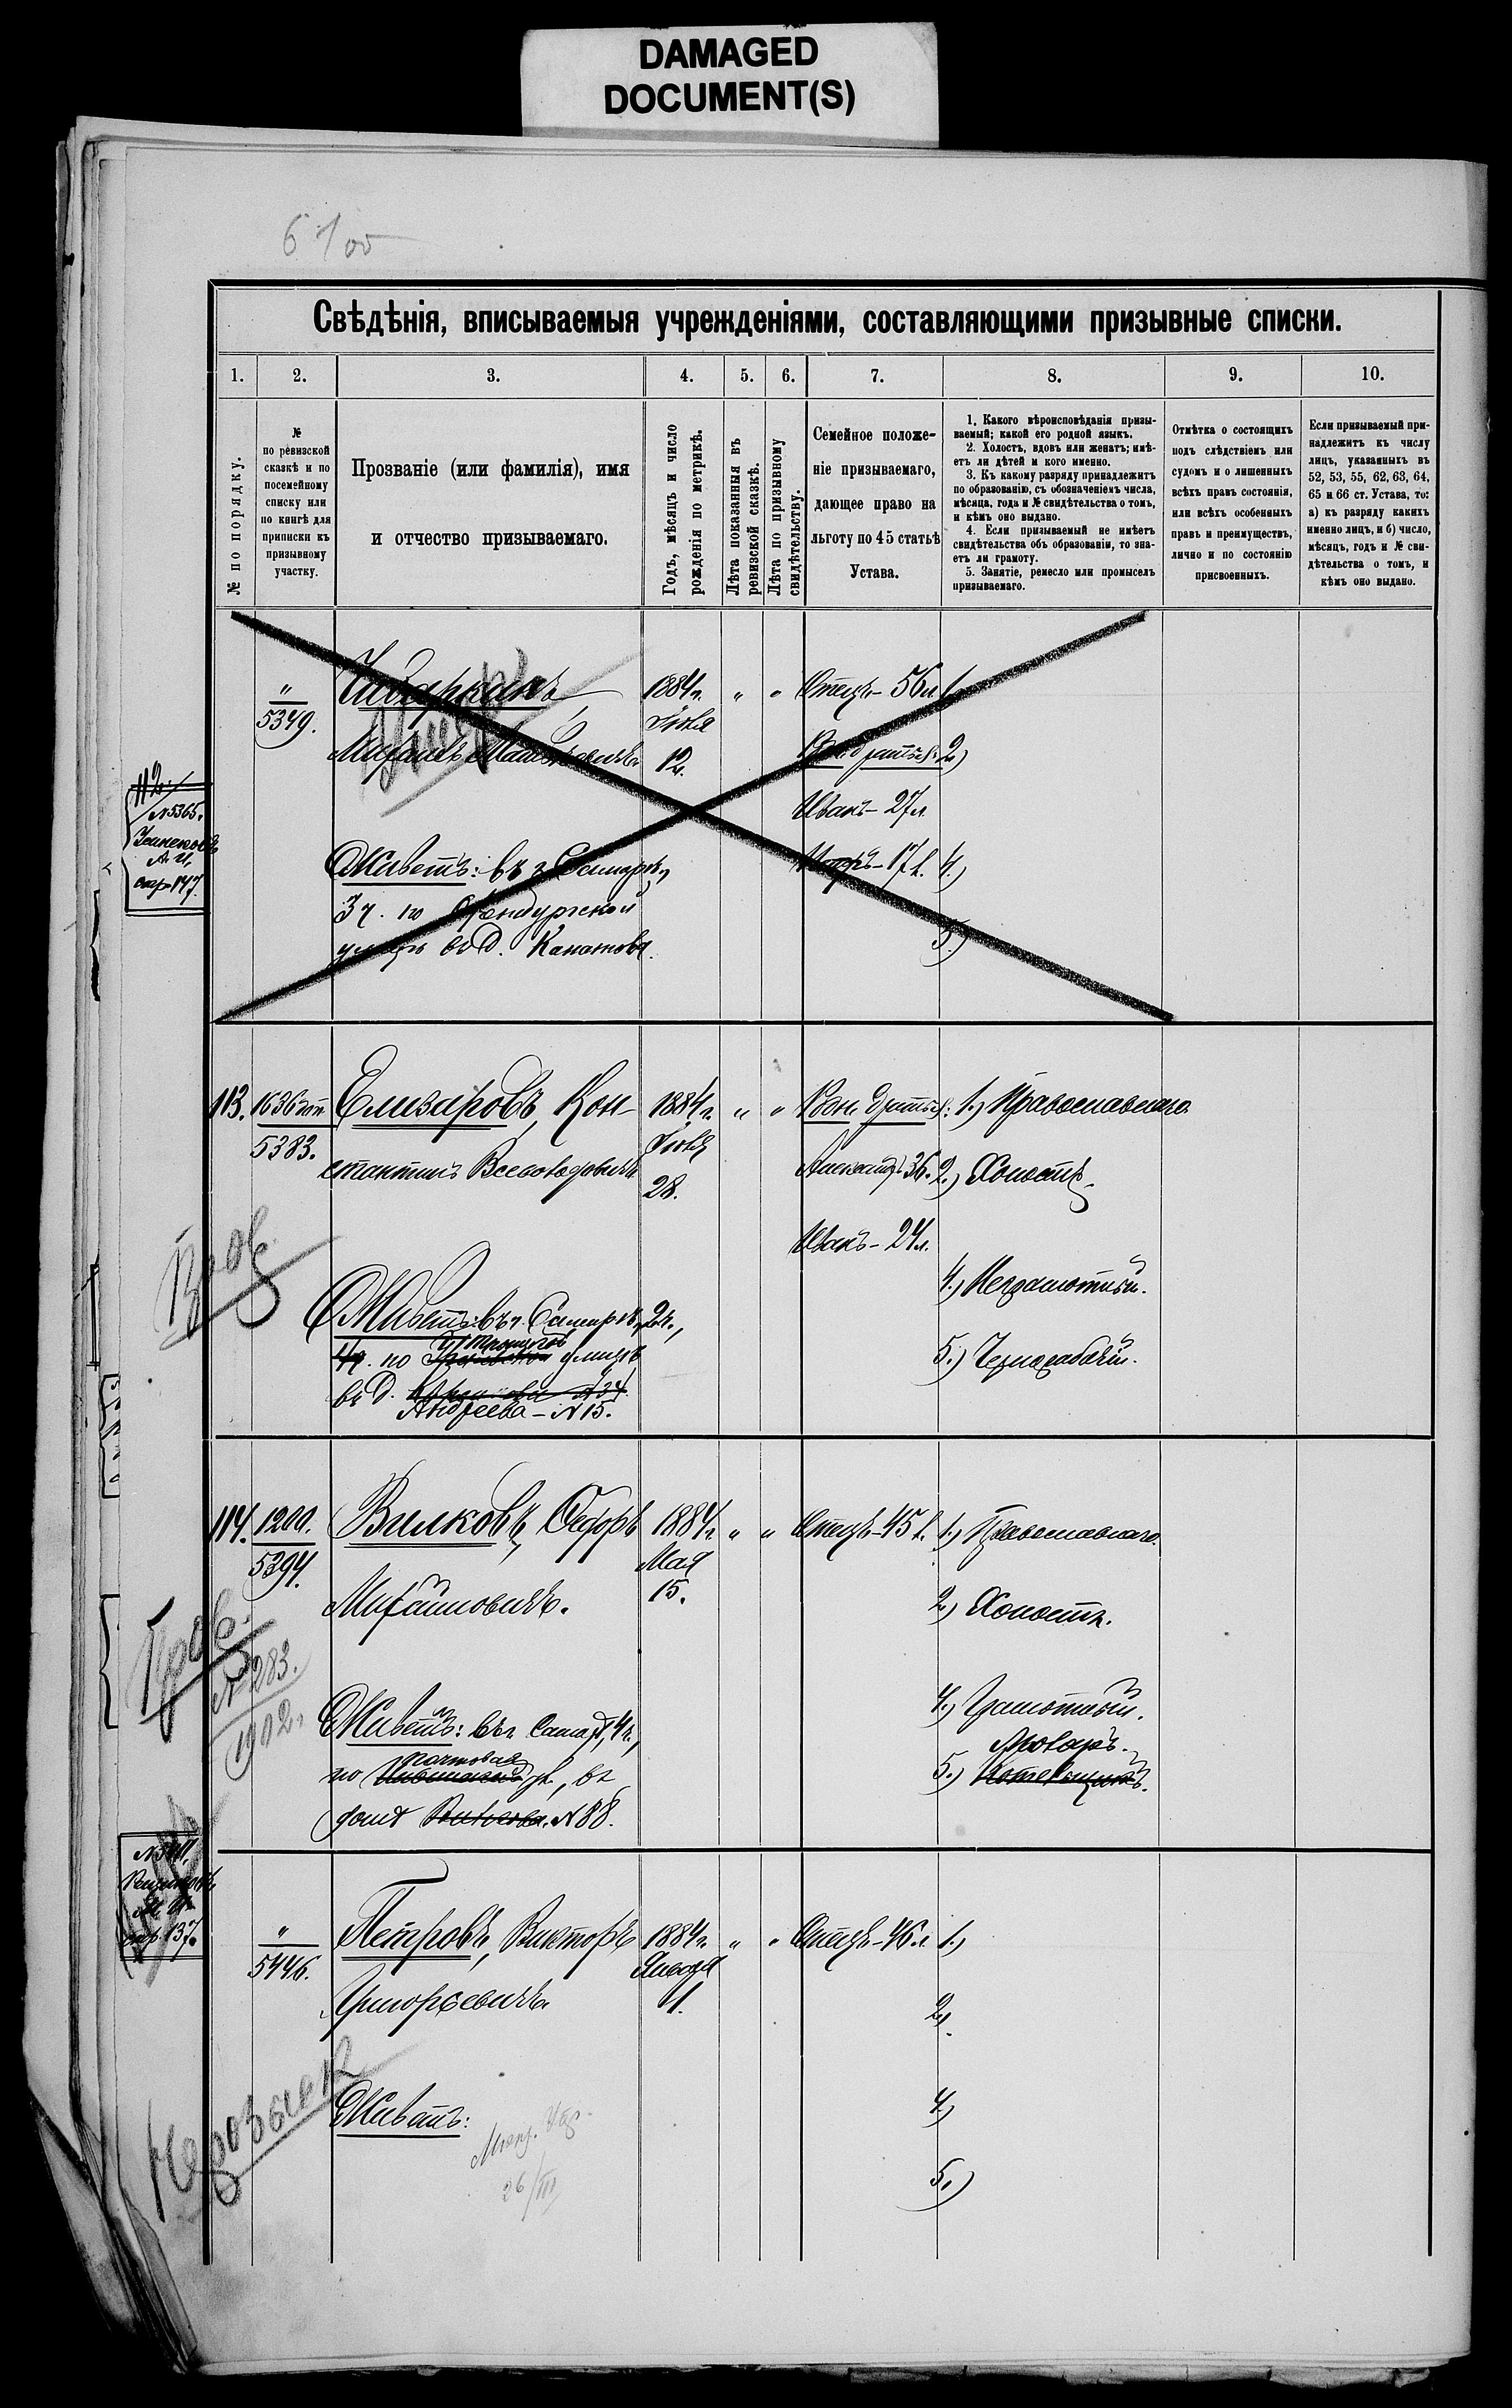 DAMAGED
DOCUMENT(S)
Свѣдѣнія, вписываемыя учрежденіями, составляющими призывные списки.
1. 2. 3. 4. 5. 6. 7. 8. 9. 10.
№ по порядку.
№
по ревизской
сказкѣ и по
посемейному
списку или
по книгѣ для
приписки къ
призывному
участку.
Прозваніе (или фамилія), имя
и отчество призываемаго.
Годъ, мѣсяцъ и число
рожденія по метрикѣ.
Лѣта показанныя въ
ревизской сказкѣ.
Лѣта по призывному
свидѣтельству.
Семейное положе-
ніе призываемаго,
дающее право на
льготу по 45 статьѣ
Устава.
1. Какого вѣроисповѣданія призы-
ваемый; какой его родной языкъ.
2. Холостъ, вдовъ или женатъ; имѣ-
етъ ли дѣтей и кого именно.
3. Къ какому разряду принадлежитъ
по образованію, съ обозначеніемъ числа,
мѣсяца, года и № свидѣтельства о томъ,
и кѣмъ оно выдано.
4. Если призываемый не имѣетъ
свидѣтельства объ образованіи, то зна-
етъ ли грамоту.
5. Занятіе, ремесло или промыселъ
призываемаго.
Отмѣтка о состоящихъ
подъ слѣдствіемъ или
судомъ и о лишенныхъ
всѣхъ правъ состоянія,
или всѣхъ особенныхъ
правъ и преимуществъ,
лично и по состоянію
присвоенныхъ.
Если призываемый при-
надлежитъ къ числу
лицъ, указанныхъ въ
52, 53, 55, 62, 63, 64,
65 и 66 ст. Устава, то:
а) къ разряду какихъ
именно лицъ, и б) число,
мѣсяцъ, годъ и № сви-
дѣтельства о томъ, и
кѣмъ оно выдано.
112.
№ 5365.
А. И.
стр. 147.
" 5349.
1884 г. " " Отецъ - 56 л. 1.)
Іюля
12.
2.)
Иванъ - 27 л.
17 л. 4.)
Живетъ: въ г. Самарѣ,
3 ч. по Оренбургской
улицѣ въ д. Канатова.
5.)
113. 5383.
Елизаровъ, Кон-
стантинъ Всеволодовичъ
1884 г. " "
28.
Родн. братья:
Александръ 36.
Иванъ - 24 л.
1.) Православнаго.
2.) Холостъ.
4.) Неграмотный.
5.) Чернорабочій.
Живетъ: въ г. Самарѣ, 2 ч.,
по улицѣ
въ д. № 34.
Андреева - № 15.
114. 1200.
5394.
Вилковъ, Ѳедоръ
Михайловичъ.
1884 г. " "
Мая
15.
Отецъ - 45 л.
1.) Православнаго.
2.) Холостъ.
4.) Грамотный.
5.)
№ 283.
1902.
Живетъ: въ г. Самарѣ, 4 ч.,
почтовая
по ул., въ
домѣ № 88.
стр. 137.
" 5446.
Петровъ, Викторъ
Григорьевичъ
1884 г. " "
Января
1.
Отецъ - 46 л.
1.)
2.)
4.)
5.)
Живетъ:
26/III